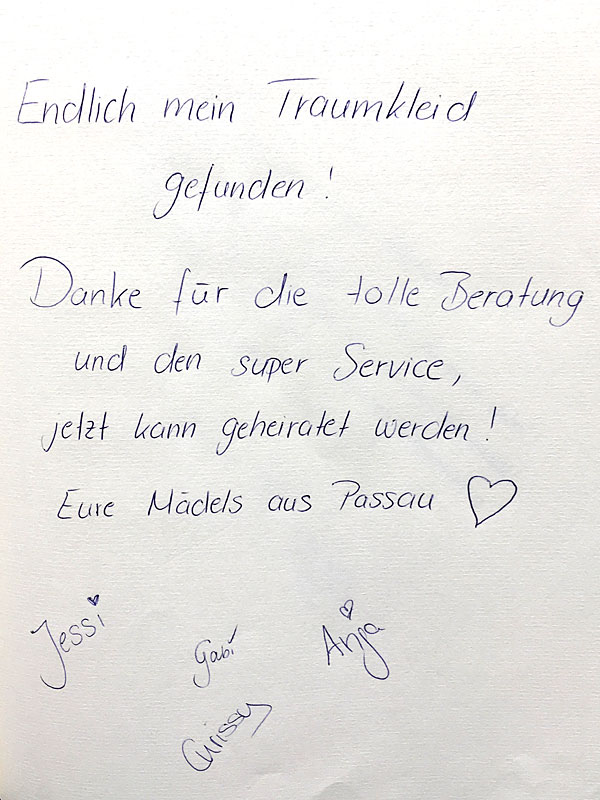 Endlich mein Traumkleid
gefunden!
Danke für die tolle Beratung
und den super Service,
jetzt kann geheiratet werden!
Eure Mädels aus Passau ♡
Jessi
Gabi
Anja
Chrissy